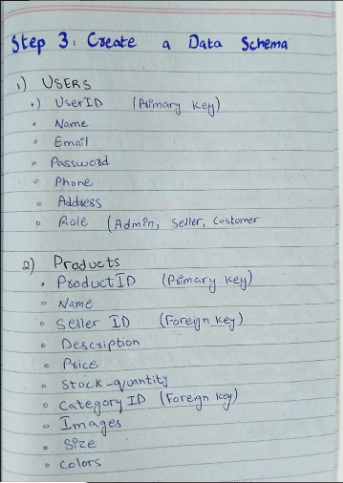 Step 3: Create a Data Schema
1) USERS
•) UserID (Primary Key)
• Name
• Email
• Password
• Phone
• Address
• Role (Admin, Seller, Customer
2) Products
• ProductID (Primary Key)
• Name
• Seller ID (Foreign Key)
• Description
• Price
• Stock-quantity
• Category ID (Foreign Key)
• Images
• Size
• Colors